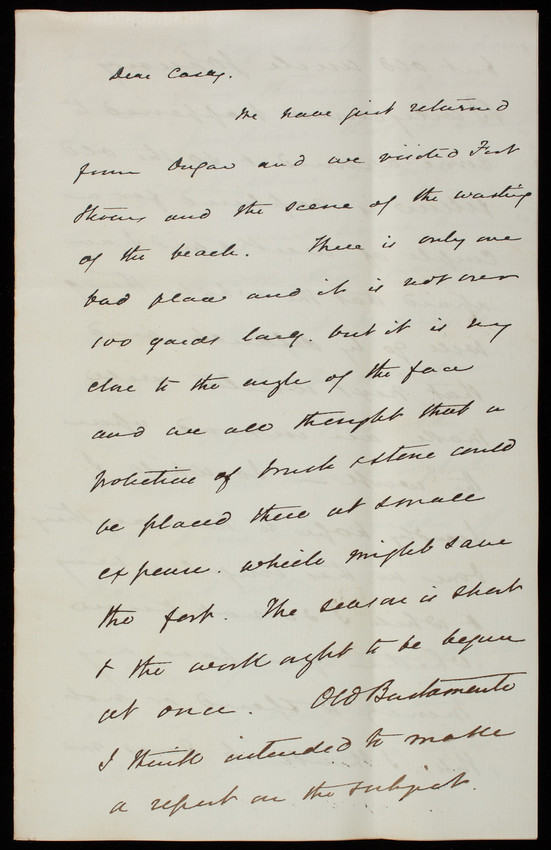 Dear Casey.
We have just returned
from and we visited Fort
Stevens and the scene of the washing
of the beach. There is only one
bad place and it is not over
100 yards long. but it is very
close to the angle of the face
and we all thought that a
protection of brush & stone could
be placed there at small
expense. which might save
the fort. The season is short
& the work ought to be begun
at once. Old Bustamente
I think intended to make
a report on the subject.